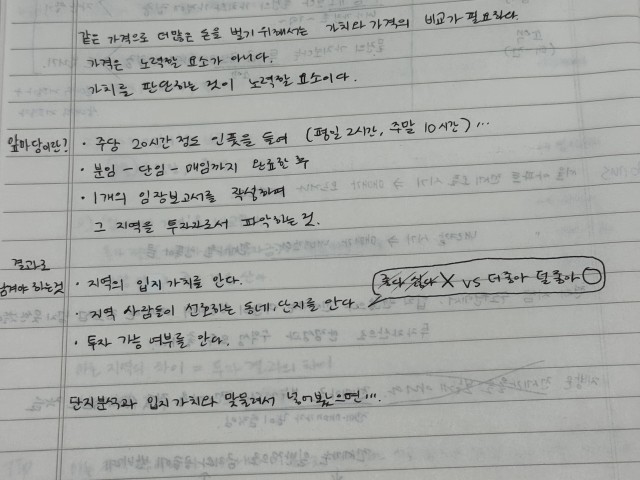 같은 가격으로 더많은 돈을 벌기 위해서는 가치와 가격의 비교가 필요하다.
가격은 노력할 요소가 아니다.
가치를 판단하는 것이 노력할 요소이다.
앞마당이란? · 주당 20시간 정도 인풋을 들여 (평일 2시간, 주말 10시간) …
· 분임 – 단임 – 매임까지 완료한 후
· 1개의 임장보고서를 작성하며
그 지역을 투자자로서 파악하는 것.
결과로
남겨야 하는것 · 지역의 입지 가치를 안다.
좋다 싫다 X vs 더 좋아 덜 좋아 O
· 지역 사람들이 선호하는 동네, 단지를 안다.
· 투자 가능 여부를 안다.
단지분석과 입지가치와 맞물려서 넣어봤으면….